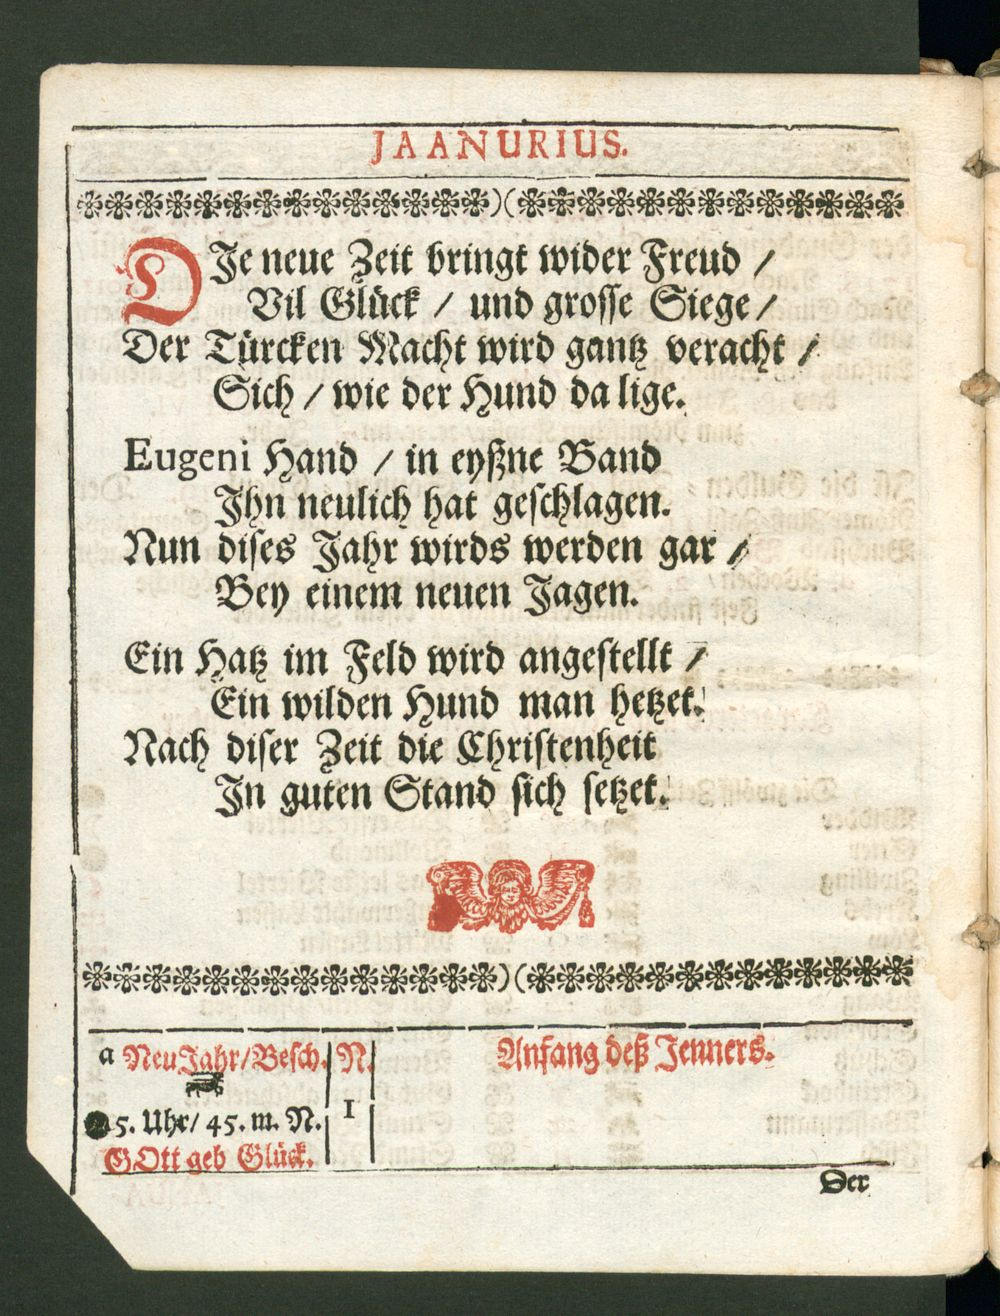 JAANURIUS.
DJe neue Zeit bringt wider Freud /
Vil Glück / und grosse Siege /
Der Türcken Macht wird gantz veracht /
Sich / wie der Hund da lige.
Eugeni Hand / in eyßne Band
Jhn neulich hat geschlagen.
Nun dises Jahr wirds werden gar /
Bey einem neuen Jagen.
Ein Hatz im Feld wird angestellt /
Ein wilden Hund man hetzet.
Nach diser Zeit die Christenheit
Jn guten Stand sich setzet.
a NeuJahr/Besch. N. Anfang deß Jenners.
5. Uhr/ 45. m. N. 1
GOtt geb Glück.
Der